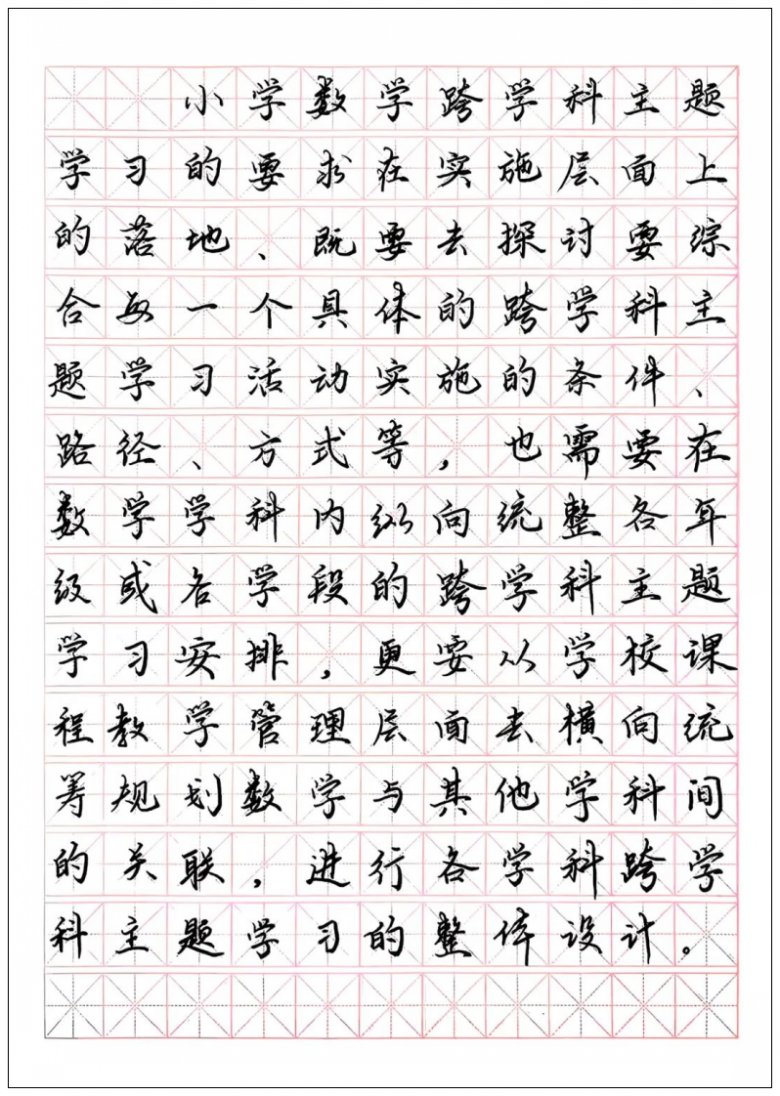 小学数学跨学科主题
学习的要求在实施层面上
的落地、既要去探讨要综
合每一个具体的跨学科主
题学习活动实施的条件、
路径、方式等，也需要在
数学学科内纵向统整各年
级或各学段的跨学科主题
学习安排，更要从学校课
程教学管理层面去横向统
筹规划数学与其他学科间
的关联，进行各学科跨学
科主题学习的整体设计。